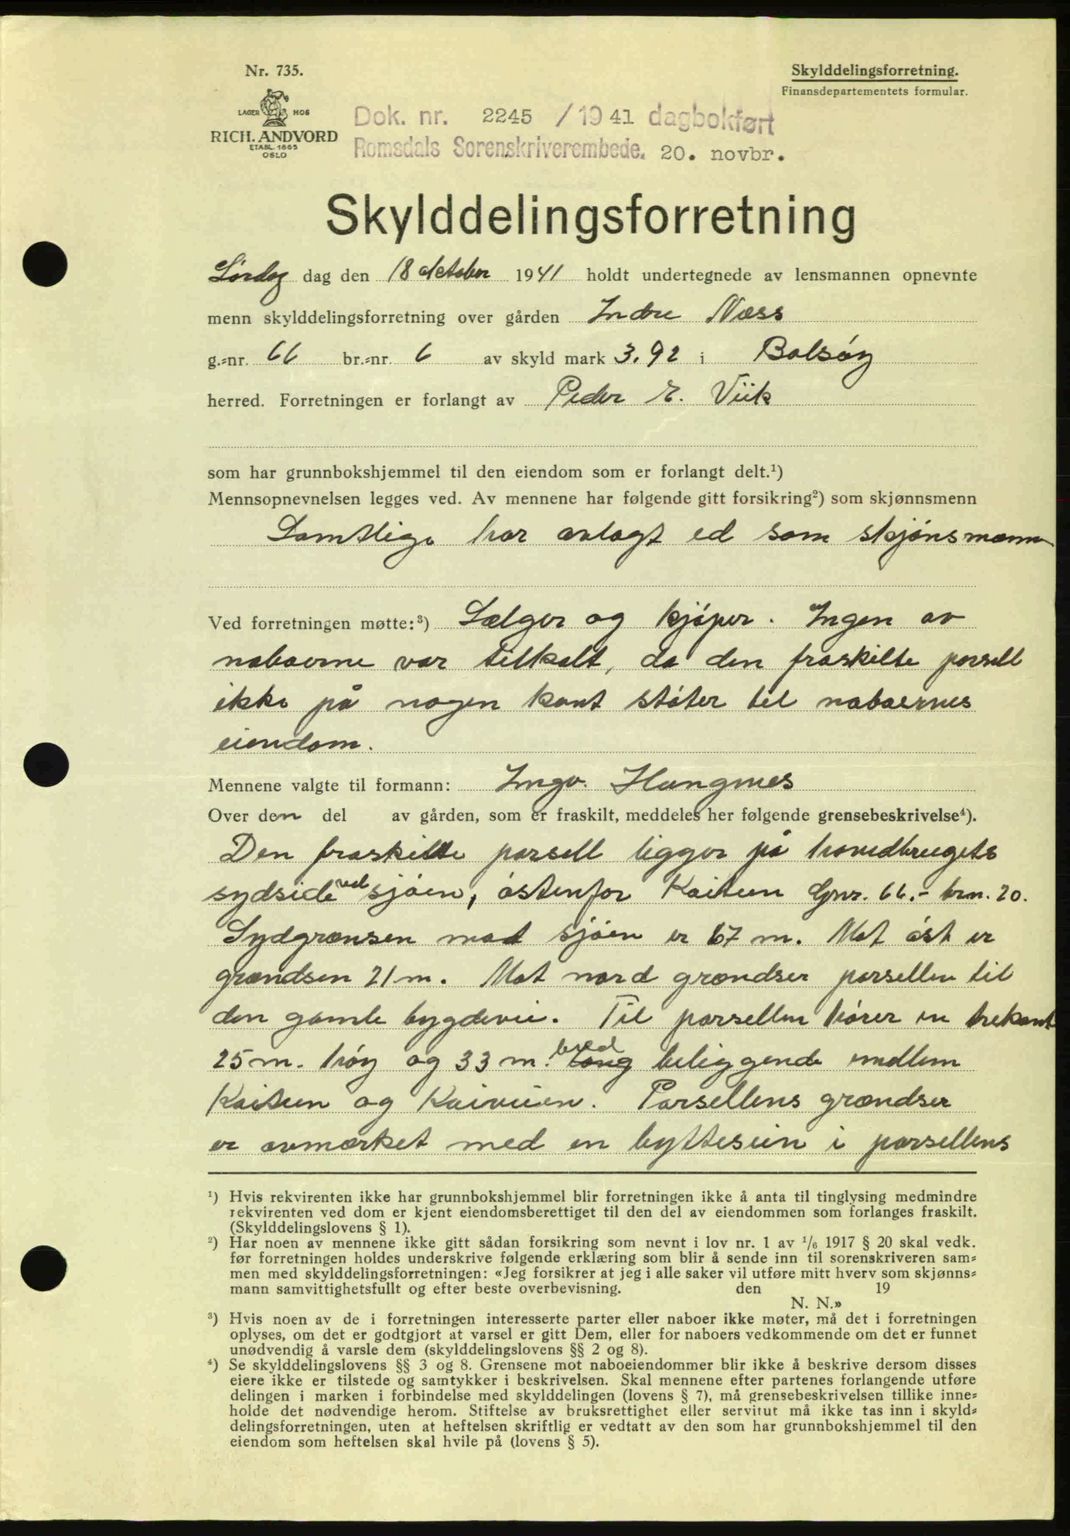 Nr. 735.
LAGER HOS
RICH. ANDVORD
ETABL. 1865
OSLO
Skylddelingsforretning.
Finansdepartementets formular.
Dok. nr. 2245 / 1941 dagbokført
Romsdals Sorenskriverembede. 20. novbr.
Skylddelingsforretning
Lørdag dag den 18 oktober 1941 holdt undertegnede av lensmannen opnevnte
menn skylddelingsforretning over gården Indre Næss
g.=nr. 66 br.=nr. 6 av skyld mark 3.92 i Bolsøy
herred. Forretningen er forlangt av Peder E. Viik
som har grunnbokshjemmel til den eiendom som er forlangt delt.¹)
Mennsopnevnelsen legges ved. Av mennene har følgende gitt forsikring²) som skjønnsmenn
Samtlige har avlagt ed som skjønsmænn
Ved forretningen møtte:³) Sælger og kjøper. Ingen av
naboerne var tilkalt, da den fraskilte parsell
ikke på nogen kant støter til naboernes
eiendom.
Mennene valgte til formann: Ingv. Haugnes
Over den del av gården, som er fraskilt, meddeles her følgende grensebeskrivelse⁴).
Den fraskilte parsell ligger på hovedbrugets
sydside ved sjøen, østenfor Kaitun Gnr. 66.- brn. 20.
Sydgrænsen mot sjøen er 67 m. Mot øst er
grændsen 21 m. Mot nord grændser parsellen til
den gamle bygdevei. Til parsellen hører en trekant
25 m. høy og 33 m. bred beliggende mellem
Kaitun og Kaiveien. Parsellens grændser
er avmærket med en byttestein i parsellens
¹) Hvis rekvirenten ikke har grunnbokshjemmel blir forretningen ikke å anta til tinglysing medmindre
rekvirenten ved dom er kjent eiendomsberettiget til den del av eiendommen som forlanges fraskilt.
(Skylddelingslovens § 1).
²) Har noen av mennene ikke gitt sådan forsikring som nevnt i lov nr. 1 av ¹/₆ 1917 § 20 skal vedk.
før forretningen holdes underskrive følgende erklæring som blir å sende inn til sorenskriveren sam=
men med skylddelingsforretningen: «Jeg forsikrer at jeg i alle saker vil utføre mitt hverv som skjønns=
mann samvittighetsfullt og efter beste overbevisning. den 19
N. N.»
³) Hvis noen av de i forretningen interesserte parter eller naboer ikke møter, må det i forretningen
oplyses, om det er godtgjort at varsel er gitt Dem, eller for naboers vedkommende om det er funnet
unødvendig å varsle dem (skylddelingslovens §§ 2 og 8).
⁴) Se skylddelingslovens §§ 3 og 8. Grensene mot naboeiendommer blir ikke å beskrive dersom disses
eiere ikke er tilstede og samtykker i beskrivelsen. Skal mennene efter partenes forlangende utføre
delingen i marken i forbindelse med skylddelingen (lovens § 7), må grensebeskrivelsen tillike inne=
holde det nødvendige herom. Stiftelse av bruksrettighet eller servitut må ikke tas inn i skyld=
delingsforretningen, uten at heftelsen skriftlig er vedtatt av den som har grunnbokshjemmel til den
eiendom som heftelsen skal hvile på (lovens § 5).